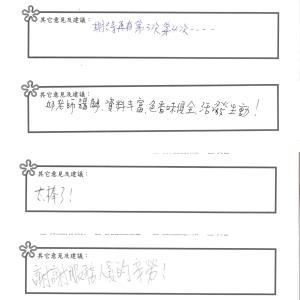 其它意見及建議：
期待再有第3次第4次----
其它意見及建議：
好老師講解,資料丰富,色香味俱全,活潑生動!
其它意見及建議：
太棒了!
其它意見及建議：
謝謝服務人員的辛勞!